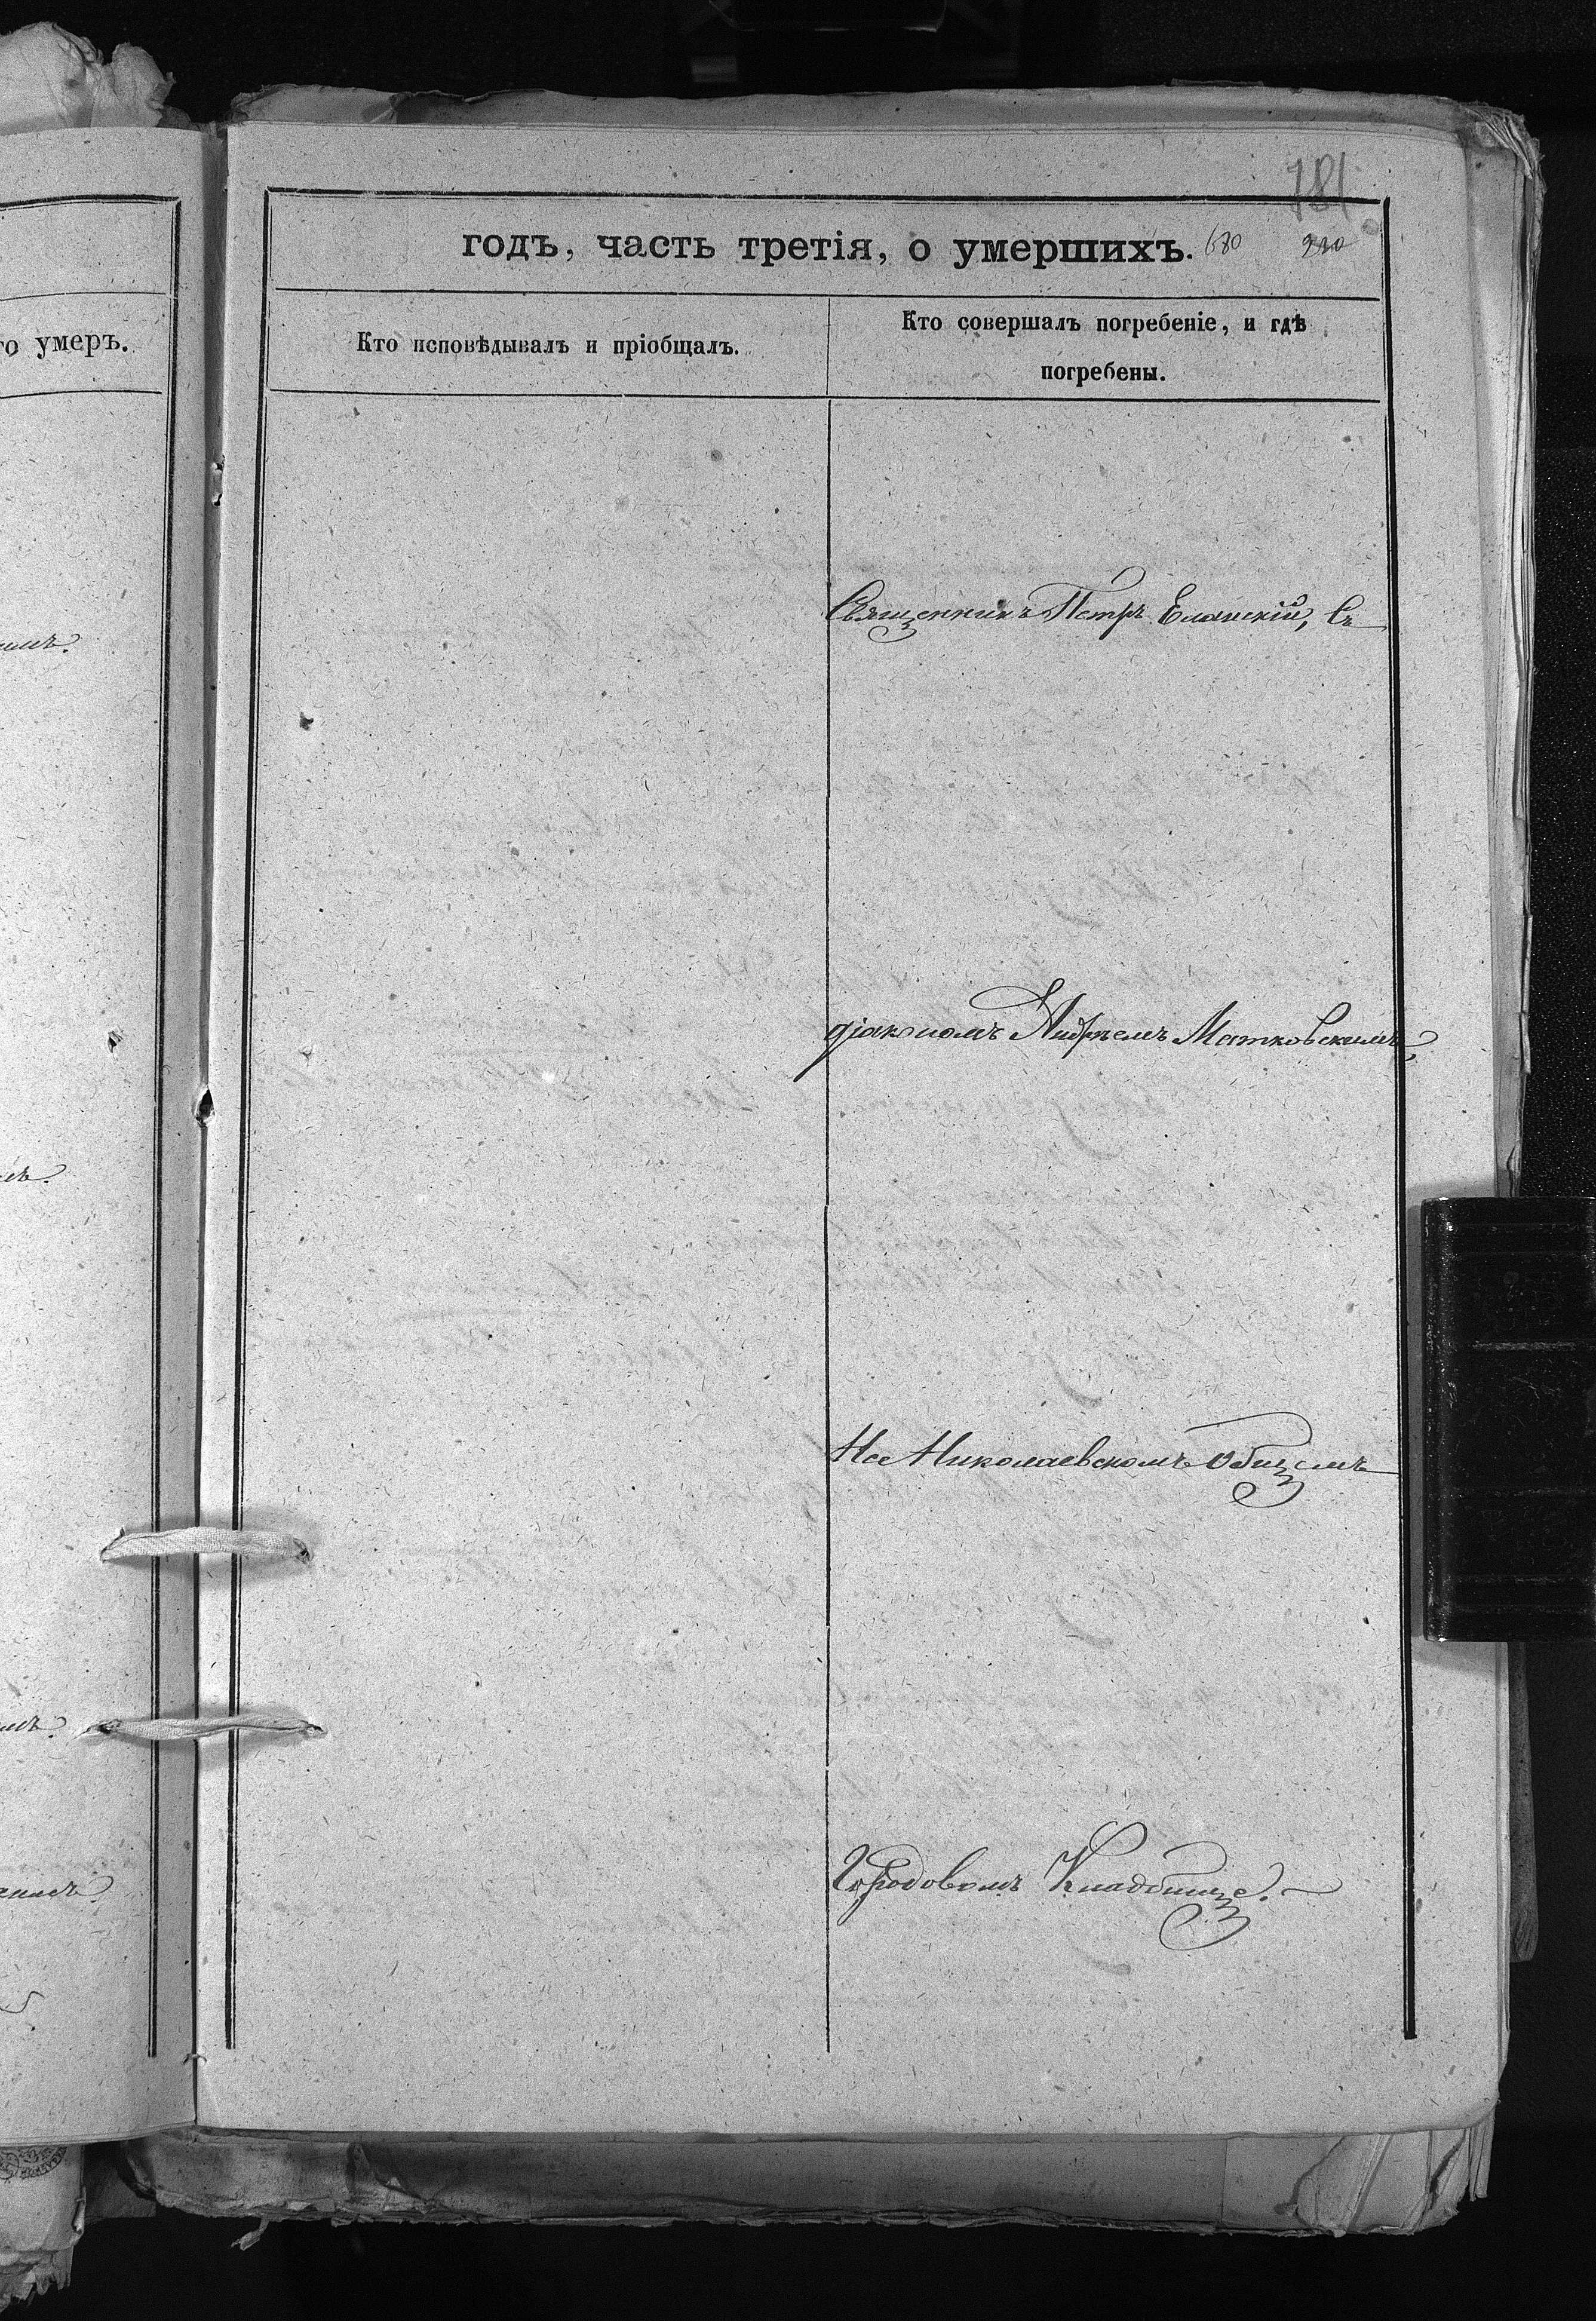 781
годъ, часть третія, о умершихъ. 680
го умеръ.
Кто исповѣдывалъ и пріобщалъ.
Кто совершалъ погребеніе, и гдѣ
погребены.
Священникъ Петръ Еланскій, Съ
діакономъ Андреемъ Матковскимъ,
На Николаевскомъ общемъ
Городовомъ Кладбище.